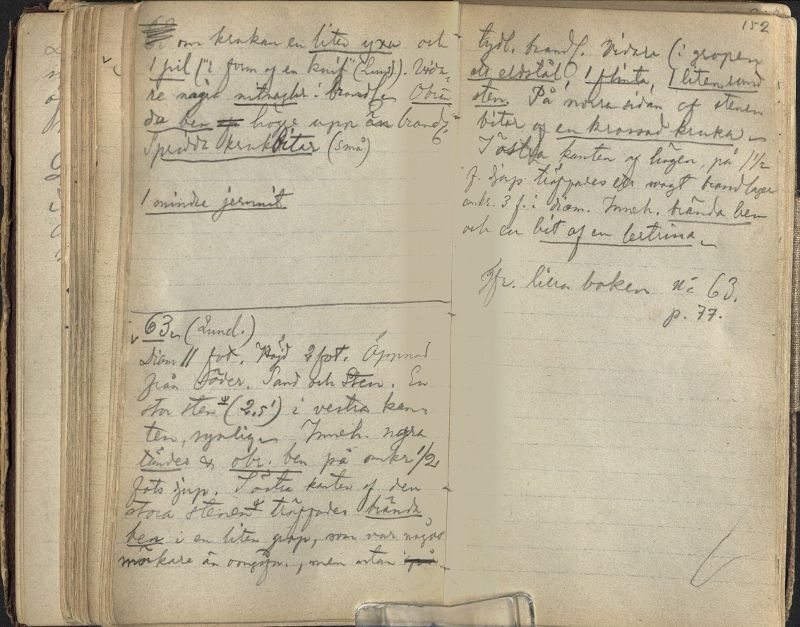 om krukan en liten yxa och
1 pil "i form af en knif" (Lund). Vida-
re några nitnaglar i brandl. Obrän
da ben högre upp än brandl.
Spridda krukbitar (små)
1 mindre jernnit.
63. (Lund.)
Diam 11 fot. Höjd 2 fot. Öppnad
från Söder. Sand och Sten. En
stor sten (2,5') i vestra kan-
ten, synlig. Inneh. några
tänder & obr. ben på omkr 1/2
fots djup. I östra kanten af den
stora stenen träffades brända
ben i en liten grop, som var något
mörkare än omgifn., men utan
152
tydl. brandl. Vidare (i gropen)
ett eldstål, 1 flinta, 1 liten rund
sten. På norra sidan af stenen
bitar af en krossad kruka.
I östra kanten af högen, på 1 1/2
f. djup träffades ett svagt brandlager
omkr. 3 f. i diam. Inneh. brända ben
och en bit af en
Jfr. lilla boken No 63.
p. 77.